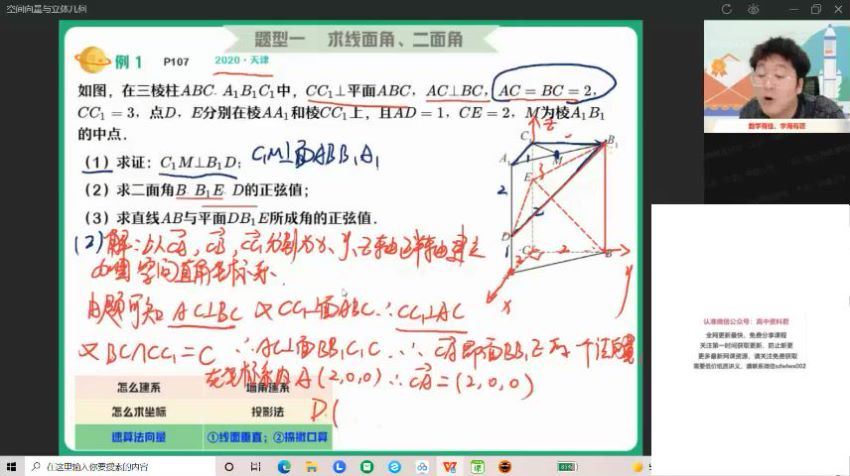 空间向量与立体几何
题型一 求线面角、二面角
例1 P107 2020·天津
如图，在三棱柱ABC-A1B1C1中，CC1⊥平面ABC，AC⊥BC，AC=BC=2，
CC1=3，点D，E分别在棱AA1和棱CC1上，且AD=1，CE=2，M为棱A1B1
的中点．
(1) 求证：C1M⊥B1D； C1M⊥面ABB1A1
(2) 求二面角B B1E D的正弦值；
(3) 求直线AB与平面DB1E所成角的正弦值．
(2) 解：以CA，CB，CC1分别为x、y、z轴正半轴建立
如图空间直角坐标系．
由题可知 AC⊥BC 又CC1⊥面ABC ∴CC1⊥AC
又BC∩CC1=C ∴AC⊥面BB1C1C ∴CA即面BB1E的一个法向量
在坐标系内A(2,0,0) ∴CA=(2,0,0)
D(
怎么建系 墙角建系
怎么求坐标 投影法
速算法向量 ①线面垂直；②搞微口算
C1
z
A1
B1
M
E
3
2
2
D
1
C
2
2
B
x
y
数学有佳，学海有涯
认准微信公众号：高中资料君
全网更新最快、免费分享课程
关注第一时间获取更新，防止断更
更多最新网课资源，请关注免费获取
在这里输入你要搜索的内容